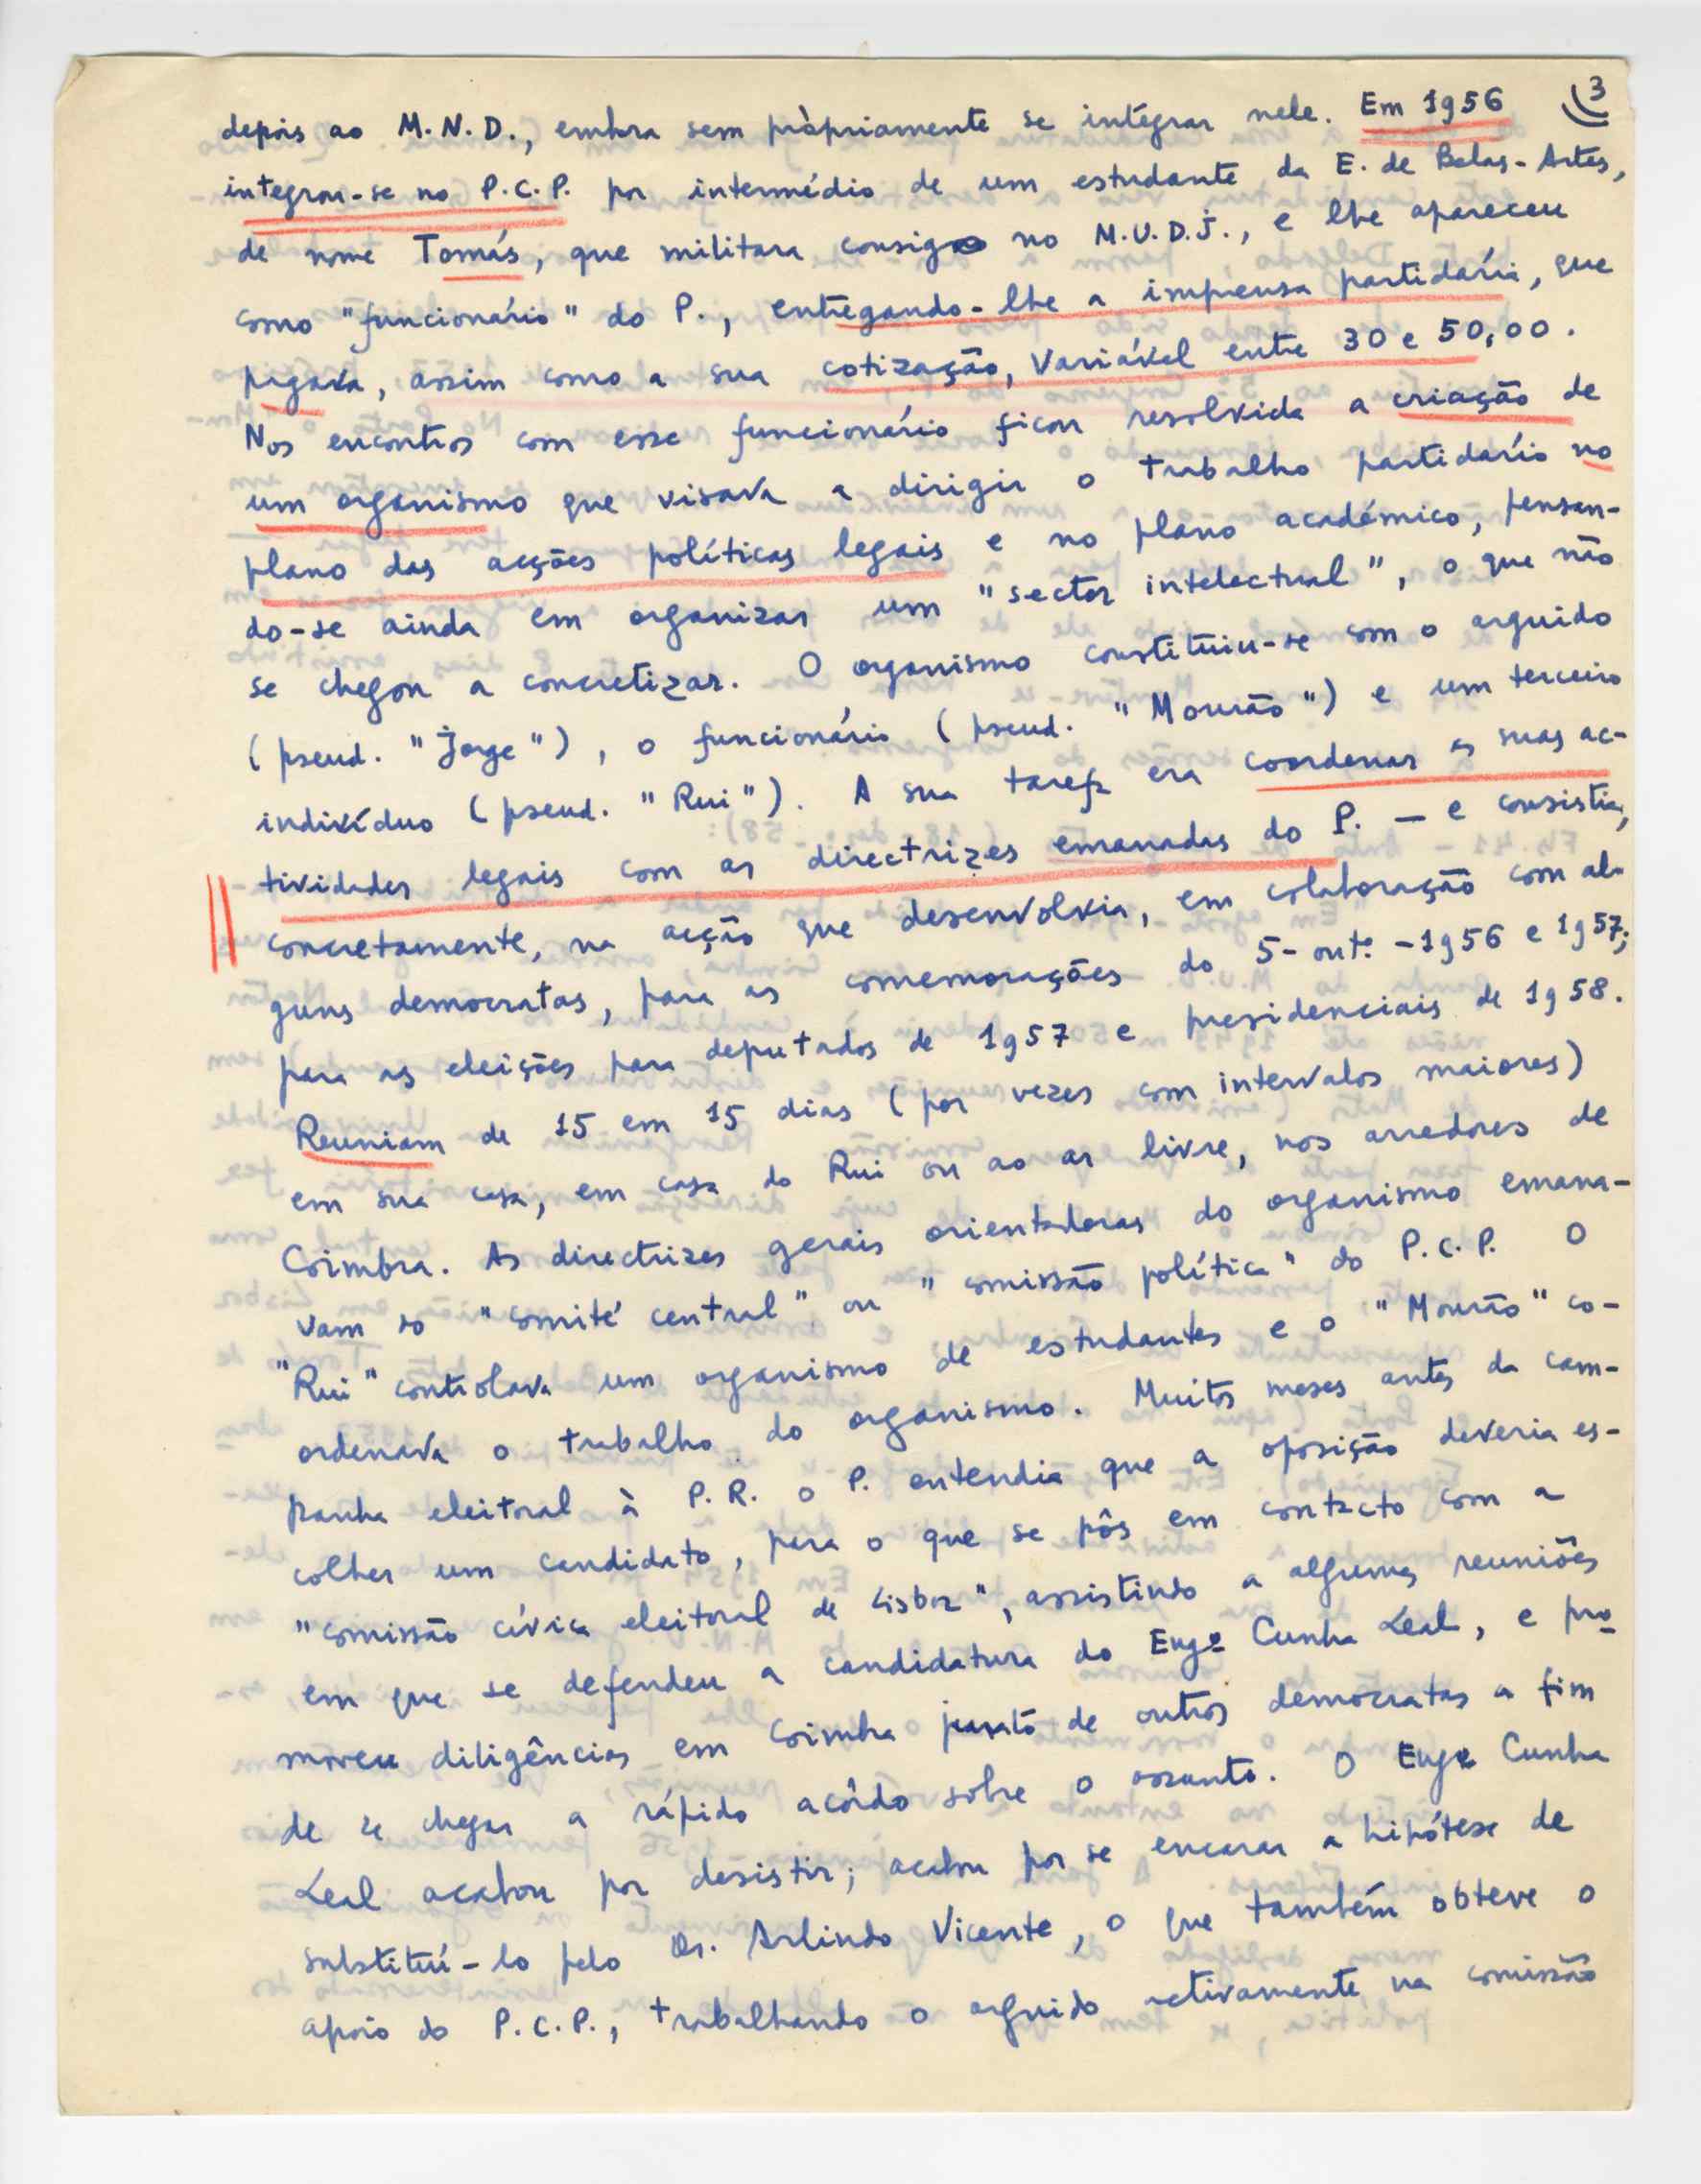 3
depois ao M.N.D., embora sem pròpriamente se intégrar nele. Em 1956
integrou-se no P.C.P. por intermédio de um estudante da E. de Belas-Artes,
de nome Tomás, que militara consigo no M.U.D.J., e lhe apareceu
como "funcionário" do P., entregando-lhe a imprensa partidária, que
pagava, assim como a sua cotização, variável entre 30 e 50,00.
Nos encontros com esse funcionário ficou resolvida a criação de
um organismo que visava a dirigir o trabalho partidário no
plano das acções políticas legais e no plano académico, pensan-
do-se ainda em organizar um "sector intelectual", o que não
se chegou a concretizar. O organismo constituiu-se com o arguido
(pseud. "Jorge"), o funcionário (pseud. "Mourão") e um terceiro
indivíduo (pseud. "Rui"). A sua tarefa era coordenar as suas ac-
tividades legais com as directrizes emanadas do P. — e consistia,
concretamente, na acção que desenvolvia, em colaboração com al-
guns democratas, para as comemorações do 5-outº-1956 e 1957;
para as eleições para deputados de 1957 e presidenciais de 1958.
Reuniam de 15 em 15 dias (por vezes com intervalos maiores)
em sua casa, em casa do Rui ou ao ar livre, nos arredores de
Coimbra. As directrizes gerais orientadoras do organismo emana-
vam do "comité central" ou "comissão política" do P.C.P. O
"Rui" controlava um organismo de estudantes e o "Mourão" co-
ordenava o trabalho do organismo. Muitos meses antes da cam-
panha eleitoral à P.R. o P. entendia que a oposição deveria es-
colher um candidato, para o que se pôs em contacto com a
"comissão cívica eleitoral de Lisboa", assistindo a algumas reuniões
em que se defendeu a candidatura do Engº Cunha Leal, e pro-
moveu diligências em Coimbra junto de outros democratas a fim
de se chegar a rápido acôrdo sobre o assunto. O Engº Cunha
Leal acabou por desistir; acabou por se encarar a hipótese de
substituí-lo pelo Dr. Arlindo Vicente, o que também obteve o
apoio do P.C.P., trabalhando o arguido activamente na comissão